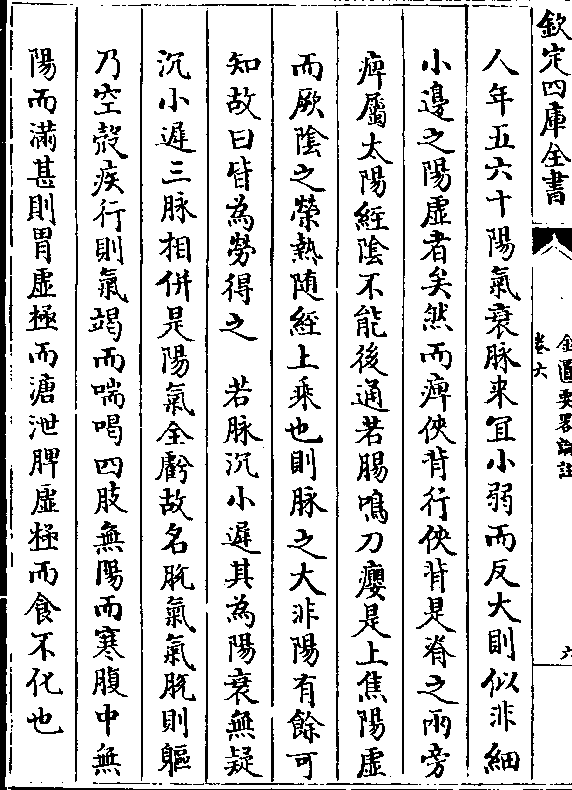 欽定四庫全書
金匱要畧論註
卷六
六
人年五六十陽氣衰脉来宜小弱而反大則似非細
小邊之陽虛者矣然而痺俠背行俠背是脊之兩旁
痺屬太陽經陰不能後通若腸鳴刀癭是上焦陽虛
而厥陰之榮熱随經上乘也則脉之大非陽有餘可
知故曰皆為勞得之　若脉沉小遲其為陽衰無疑
沉小遲三脉相併是陽氣全虧故名脱氣氣脱則軀
乃空殻疾行則氣竭而喘喝四肢無陽而寒腹中無
陽而滿甚則胃虛極而溏泄脾虛極而食不化也